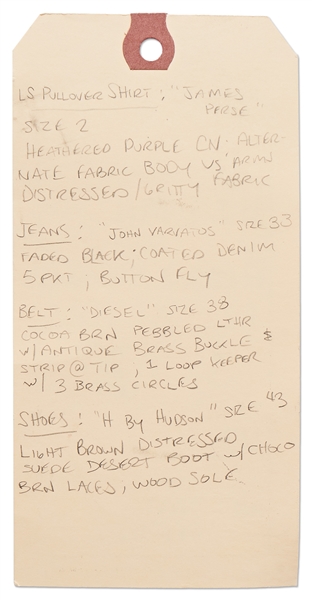 LS PULLOVER SHIRT : "JAMES
PERSE"
SIZE 2
HEATHERED PURPLE CN. ALTER-
NATE FABRIC BODY VS ARM
DISTRESSED/GRITTY FABRIC
JEANS : "JOHN VARVATOS" SIZE 33
FADED BLACK; COATED DENIM
5 PKT ; BUTTON FLY
BELT : "DIESEL" SIZE 38
COCOA BRN PEBBLED LTHR
W/ANTIQUE BRASS BUCKLE &
STRIP @ TIP , 1 LOOP KEEPER
W/ 3 BRASS CIRCLES
SHOES : "H BY HUDSON" SIZE 43
LIGHT BROWN DISTRESSED
SUEDE DESERT BOOT W/CHOCO
BRN LACES; WOOD SOLE